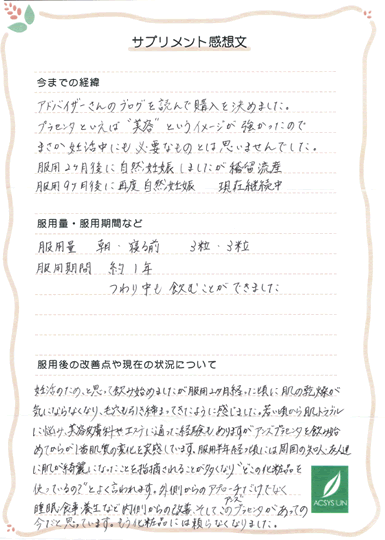 サプリメント感想文
今までの経緯
アドバイザーさんのブログを読んで購入を決めました。
プラセンタといえば"美容"というイメージが強かったので
まさか妊活中にも必要なものとは思いませんでした。
服用2ヶ月後に自然妊娠しましたが稽留流産
服用9ヶ月後に再度自然妊娠 現在継続中
服用量・服用期間など
服用量 朝・寝る前 3粒・3粒
服用期間 約1年
つわり中も飲むことができました
服用後の改善点や現在の状況について
妊活のため、と思って飲み始めましたが服用2ヶ月経った頃に肌の乾燥が
気にならなくなり、毛穴も引き締まってきたように感じました。若い頃から肌トラブル
に悩み、美容皮膚科やエステに通った経験もありますがアシスプラセンタを飲み始
めてからが1番肌質の変化を実感しています。服用半年経つ頃には周囲の知人、友人達
に肌が綺麗になったことを指摘されることが多くなり"どこの化粧品を
使っているの?"とよく言われます。外側からのアプローチだけでなく
睡眠、食事、養生など内側からの改善、そしてこのアシスプラセンタがあっての
今だと思っています。もう化粧品には頼らなくなりました。
ACSYS UN